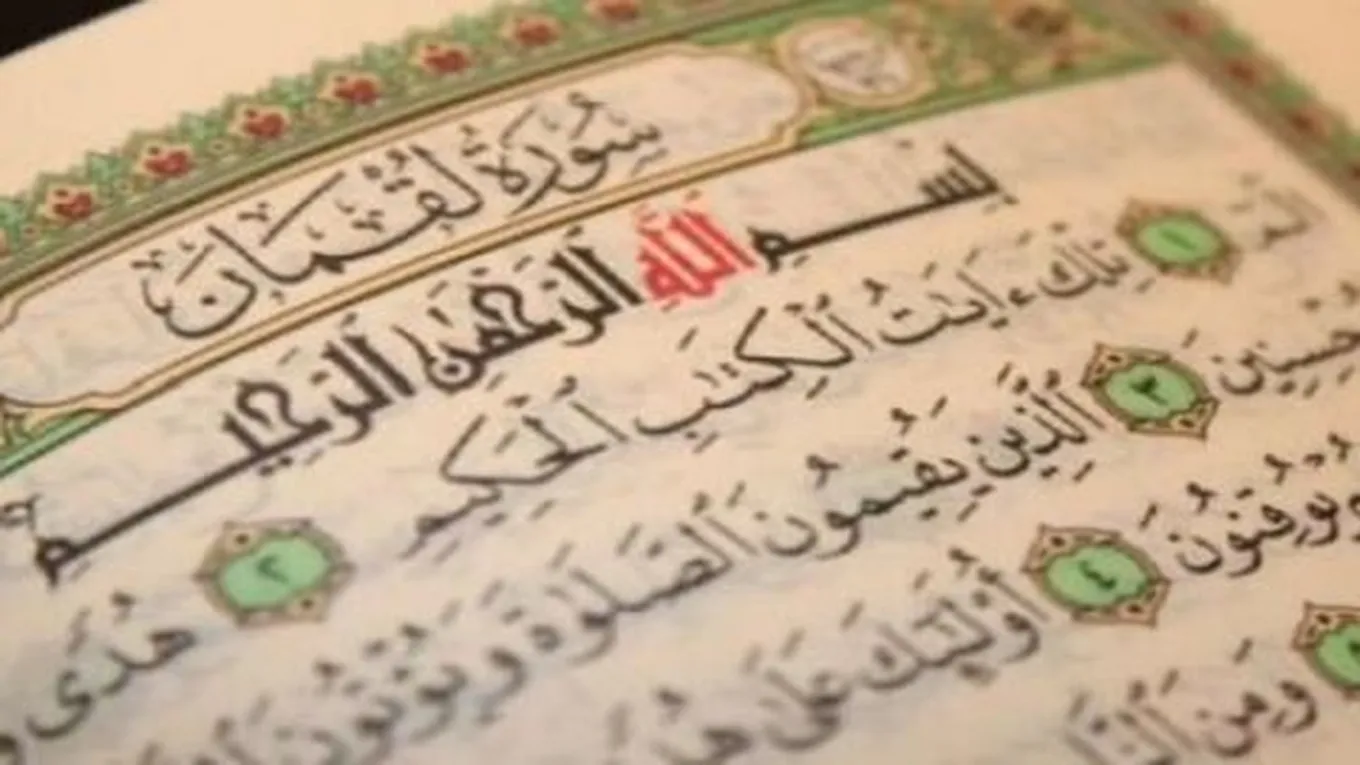 سُورَةُ لُقْمَانَ
بِسْمِ ٱللَّهِ ٱلرَّحْمَٰنِ ٱلرَّحِيمِ
الٓمٓ ١ تِلْكَ ءَايَٰتُ ٱلْكِتَٰبِ ٱلْحَكِيمِ ٢ هُدًى
ٱلَّذِينَ يُقِيمُونَ ٱلصَّلَوٰةَ وَيُؤْتُونَ ٣
يُوقِنُونَ ٤ أُو۟لَٰٓئِكَ عَلَىٰ هُدًى
٥ وَمِنَ